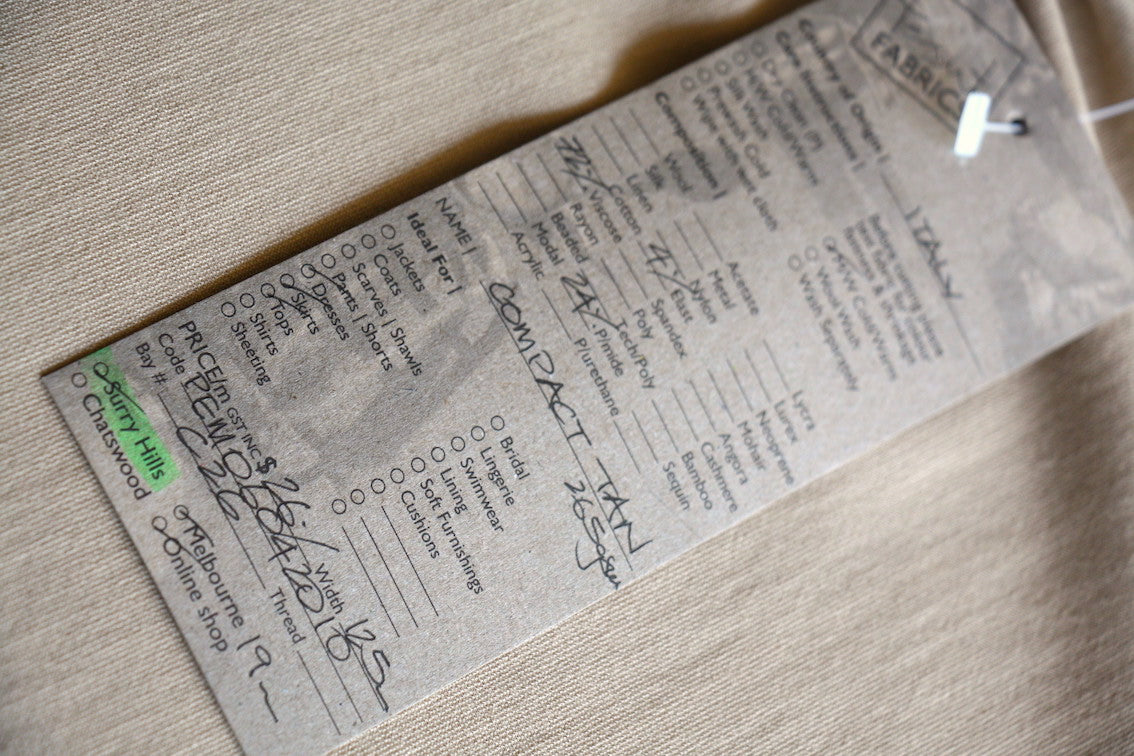 FABRIC
Country of Origin | ITALY
Care Instructions |
Dry Clean (P)
H/W Cold/Warm
Silk Wash
Prewash Cold
Wipe with wet cloth
Before cutting please
test fabric for colour
fastness & shrinkage
M/W Cold/Warm
Wool Wash
Wash Separately
Composition |
Wool
Silk
Linen
72% Cotton
Viscose
Rayon
Beaded
Modal
Acrylic
Acetate
Metal
Nylon
4% Elast
Spandex
Poly
Tech/Poly
24% P/mide
P/urethane
Lycra
Lurex
Neoprene
Mohair
Angora
Cashmere
Bamboo
Sequin
NAME | COMPACT TAN
265gsm
Ideal For |
Jackets
Coats
Scarves | Shawls
Pants | Shorts
Dresses
Skirts
Tops
Shirts
Sheeting
Bridal
Lingerie
Swimwear
Lining
Soft Furnishings
Cushions
PRICE/m GST INC $ Width
Code
Bay #. C26 Thread
Surry Hills
Chatswood
Melbourne 19m
Online shop